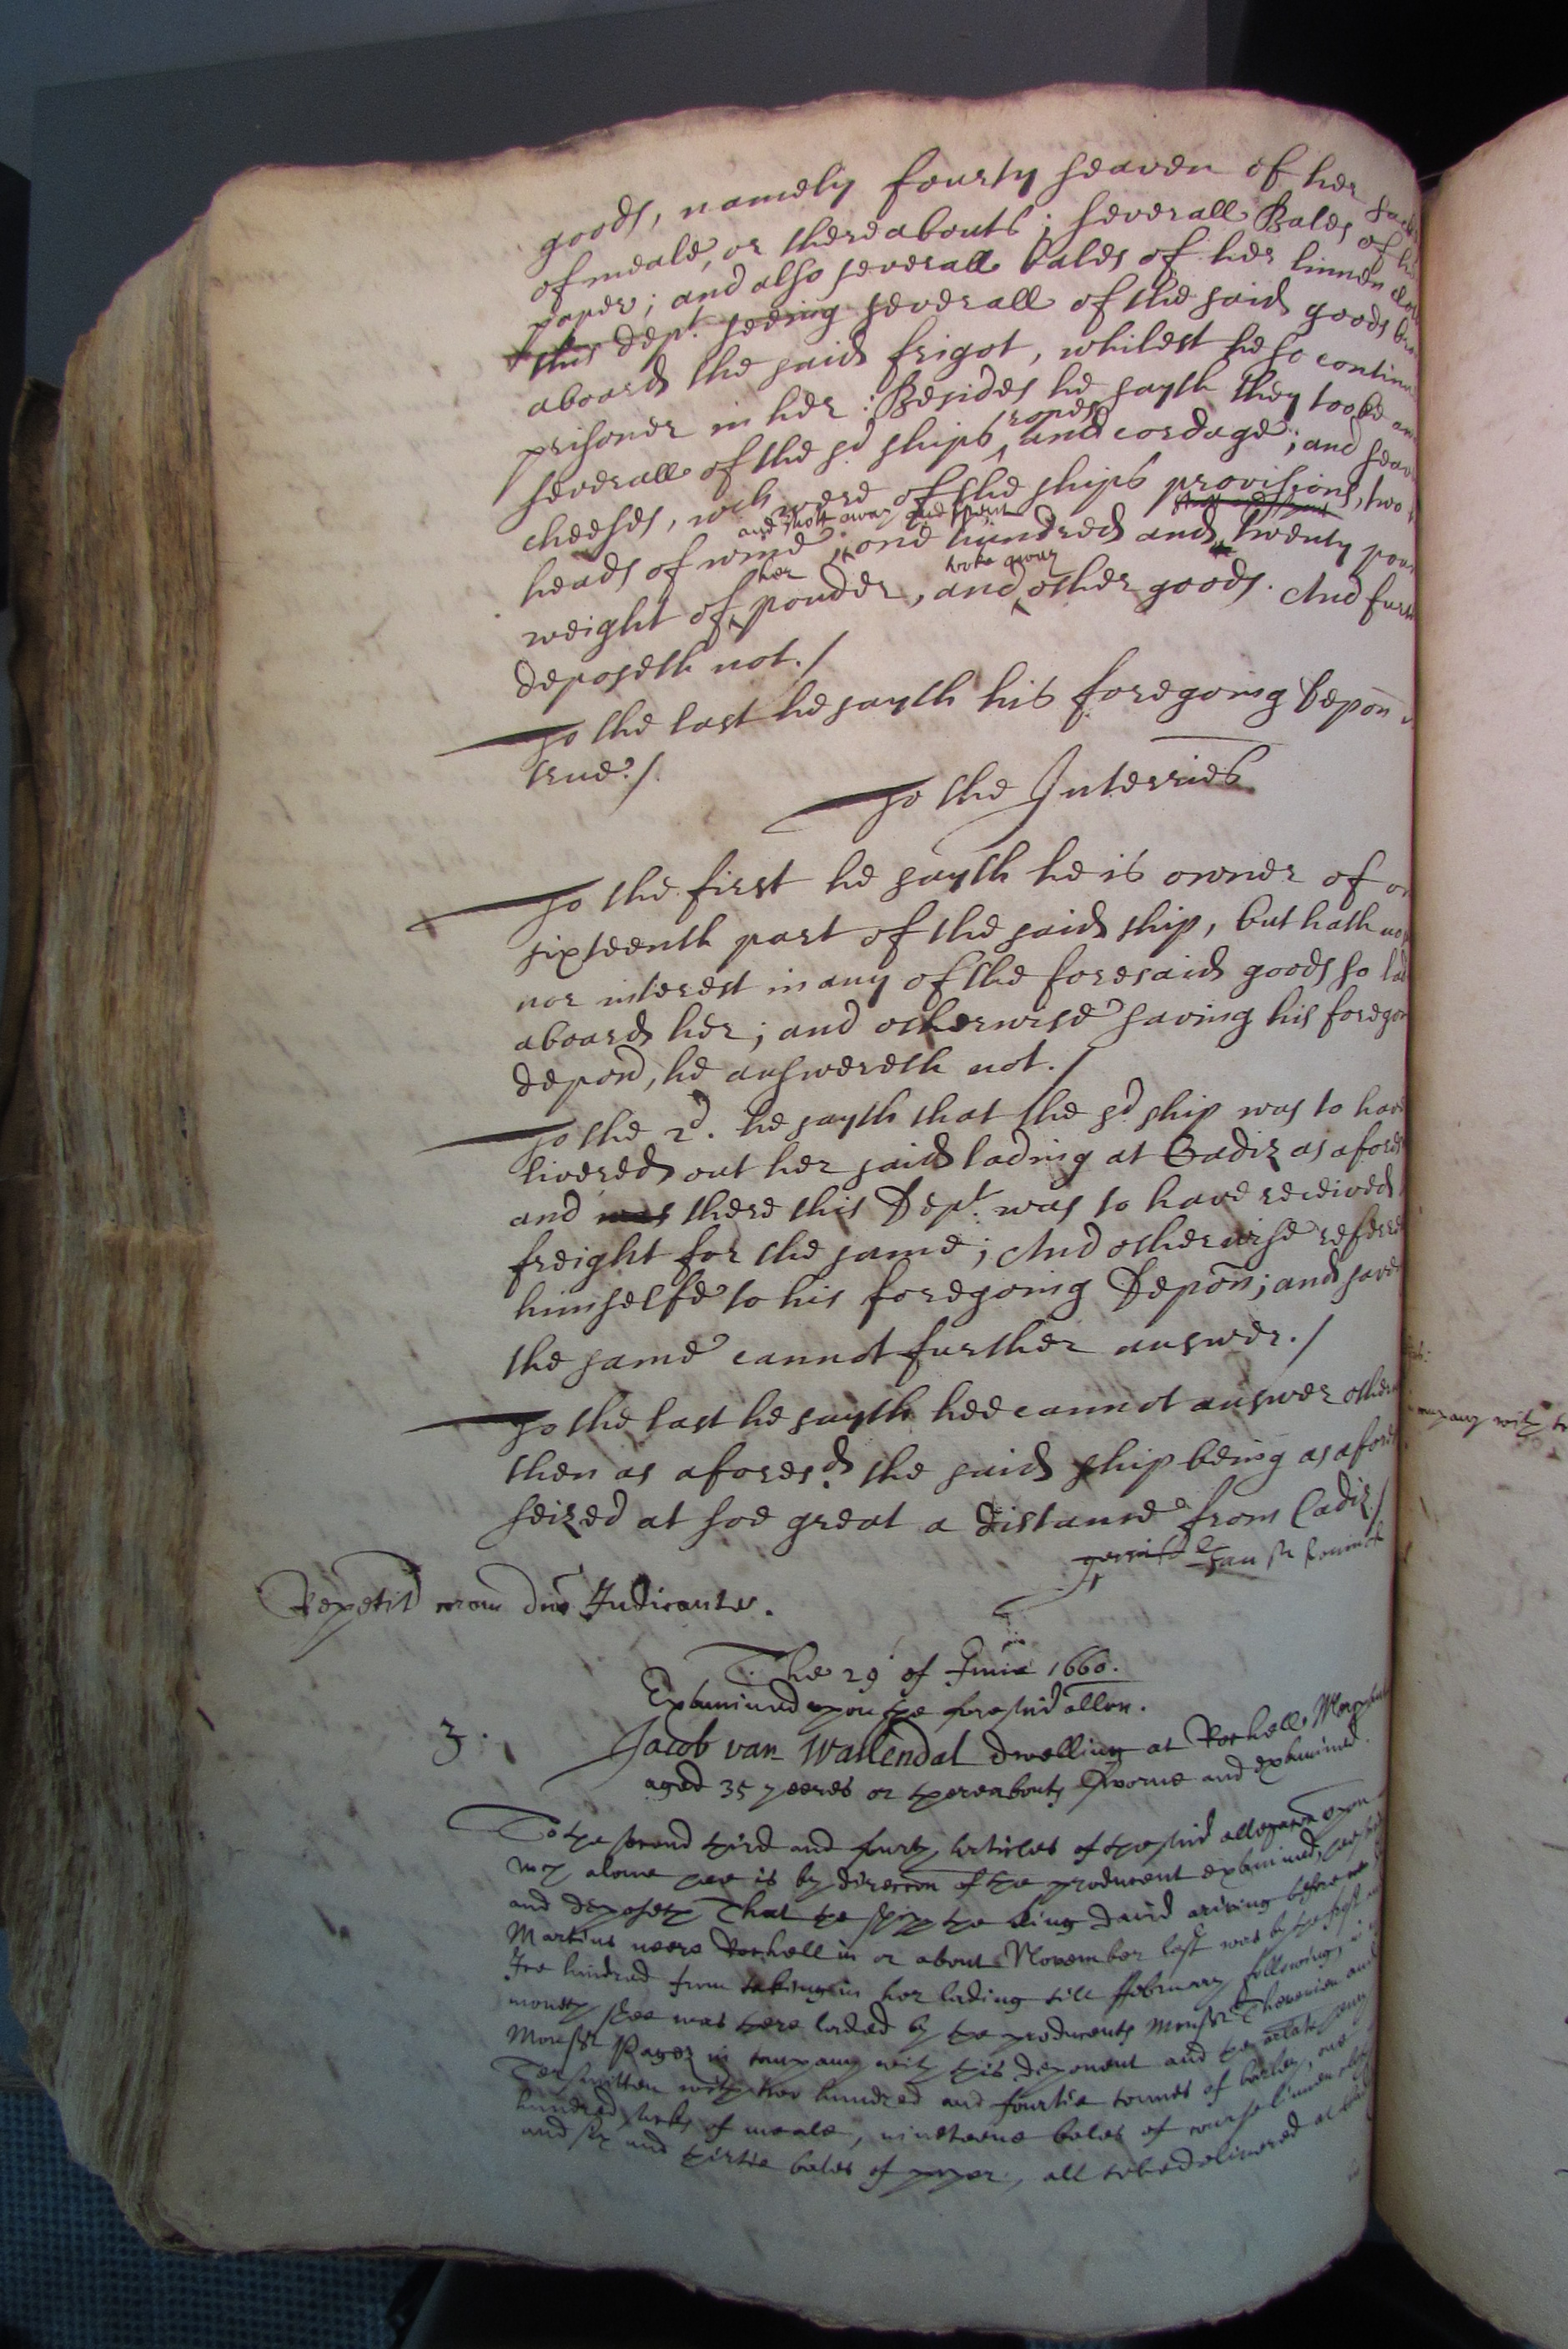 goods, namely fourty seaven of her
of meale, or thereabouts; severall Bales of
paper; and also severall bales of her linnen
this dept. seeing severall of the said goods
aboard the said frigot, whilest he so
prisoner in her: Besides he sayth they tooke
severall of the sd ships ropes and cordage; and
cheeses, wch were of the ships provisions, two
and shott away and spent
heads of wine, one hundred and twenty
weight of her pouder, and tooke away other goods. And
deposeth not./
To the last he sayth his foregoing depon
true./
To the Interries
To the first he sayth he is owner of
sixteenth part of the said ship, but hath
nor interest in any of the foresaid goods so
aboard her; and otherwise saving his
depond, he answereth not./
To the 2d. he sayth that the sd ship was to
livered out her said lading at Cadiz as
and was there this Dept. was to have received
freight for the same; And otherwise
himselfe to his foregoing Depon; and
the same cannot further answer./
To the last he sayth hee cannot answer
then as aforesd. the said ship being as
seized at soe great a distance from Cadiz./
Repetit coram duo Judicauter.
The 29 of Junii 1660.
Examined upon the foresaid allon.
3.
Jacob van Wallendal dwelling at Rochell
aged 35 yeeres or thereabouts sworne and examined.
To the second third and fourth articles of the said allegation upon
wch alone hee is by direccon of the producent examined, hee
and deposeth That the shipp the King David ariving before
Martins neere Rochell in or about November last was by the
Ice hindred from taking in her lading till ffebruary following,
moneth shee was there laded by the producents Monsr Thevenin and
Monsr Pagez in company with this deponent and the
Tersmitten with two hundred and fourtie tonnes of barley, one
hundred sacks of meale, nineteene bales of course linnen
and six and thirtie bales of paper, all to be delivered at